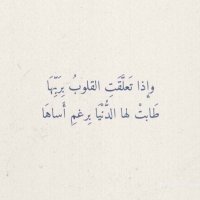 وإذا تَعلَّقَتِ القلوبُ بِرَبِّهَا
طَابتْ لها الدُّنْيَا بِرغمِ أَساهَا